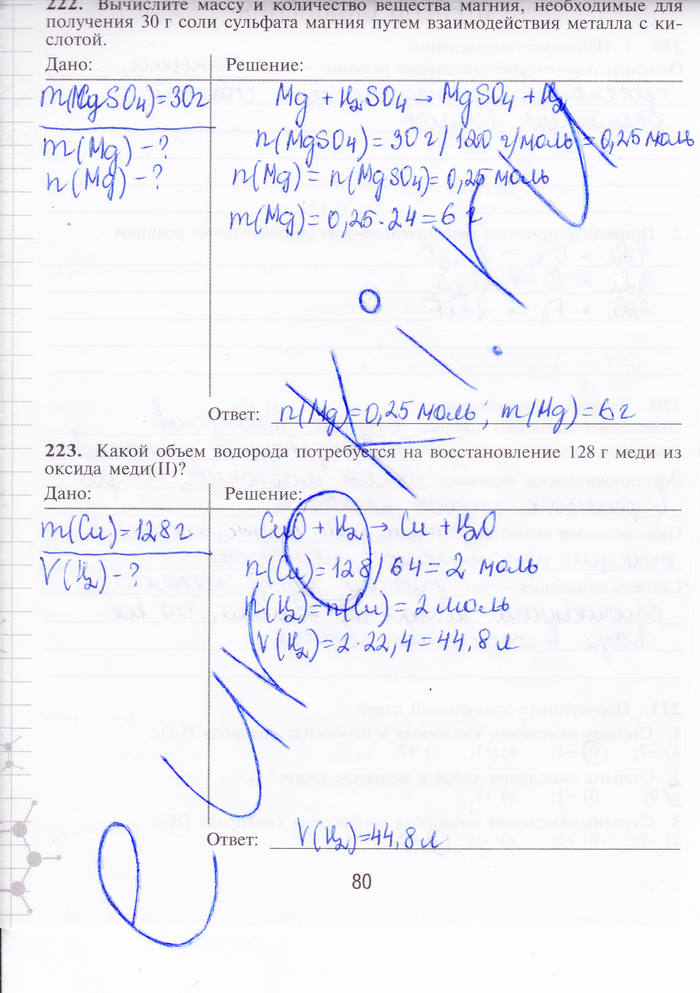 222. Вычислите массу и количество вещества магния, необходимые для
получения 30 г соли сульфата магния путем взаимодействия металла с ки-
слотой.
Дано: Решение:
m(MgSO4)=30г Mg + H2SO4 → MgSO4 + H2
m(Mg) - ? n(MgSO4) = 30 г/ 120 г/моль = 0,25 моль
n(Mg) - ? n(Mg) = n(MgSO4) = 0,25 моль
m(Mg) = 0,25 · 24 = 6 г
Ответ: n(Mg)=0,25 моль; m(Mg)=6 г
223. Какой объем водорода потребуется на восстановление 128 г меди из
оксида меди(II)?
Дано: Решение:
m(Cu)=128 г CuO + H2 → Cu + H2O
V(H2) - ? n(Cu) = 128/64 = 2 моль
n(H2)=n(Cu) = 2 моль
V(H2) = 2 · 22,4 = 44,8 л
Ответ: V(H2)=44,8 л
80